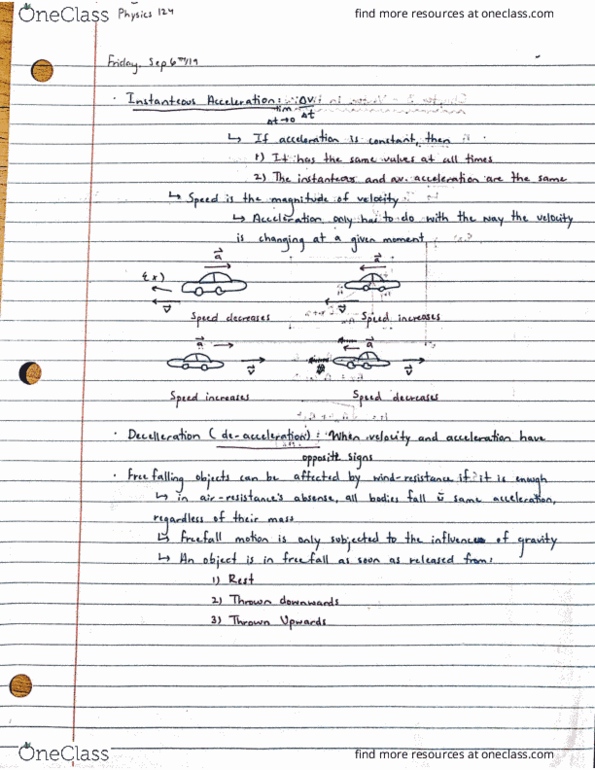 OneClass
Physics 124
find more resources at oneclass.com
Friday, Sep 6th/19
· Instanteous Acceleration: lim Δv
Δt→0 Δt
↳ If acceleration is constant, then
1) It has the same values at all times
2) The instanteous and av. acceleration are the same
↳ Speed is the magnitude of velocity
↳ Acceleration only has to do with the way the velocity
is changing at a given moment
a a
(x)
v v
Speed decreases Speed increases
a a
v v
Speed increases Speed decreases
· Decelleration (de-acceleration): When velocity and acceleration have
opposite signs
· Free falling objects can be affected by wind-resistance if it is enough
↳ in air-resistance's absense, all bodies fall same acceleration,
regardless of their mass
↳ Freefall motion is only subjected to the influences of gravity
↳ An object is in freefall as soon as released from:
1) Rest
2) Thrown downwards
3) Thrown Upwards
OneClass
find more resources at oneclass.com